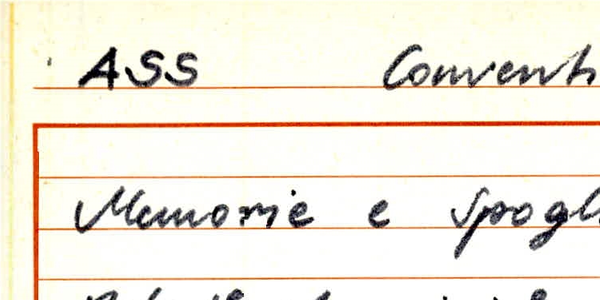 ASS Convent
Memorie e Spogl